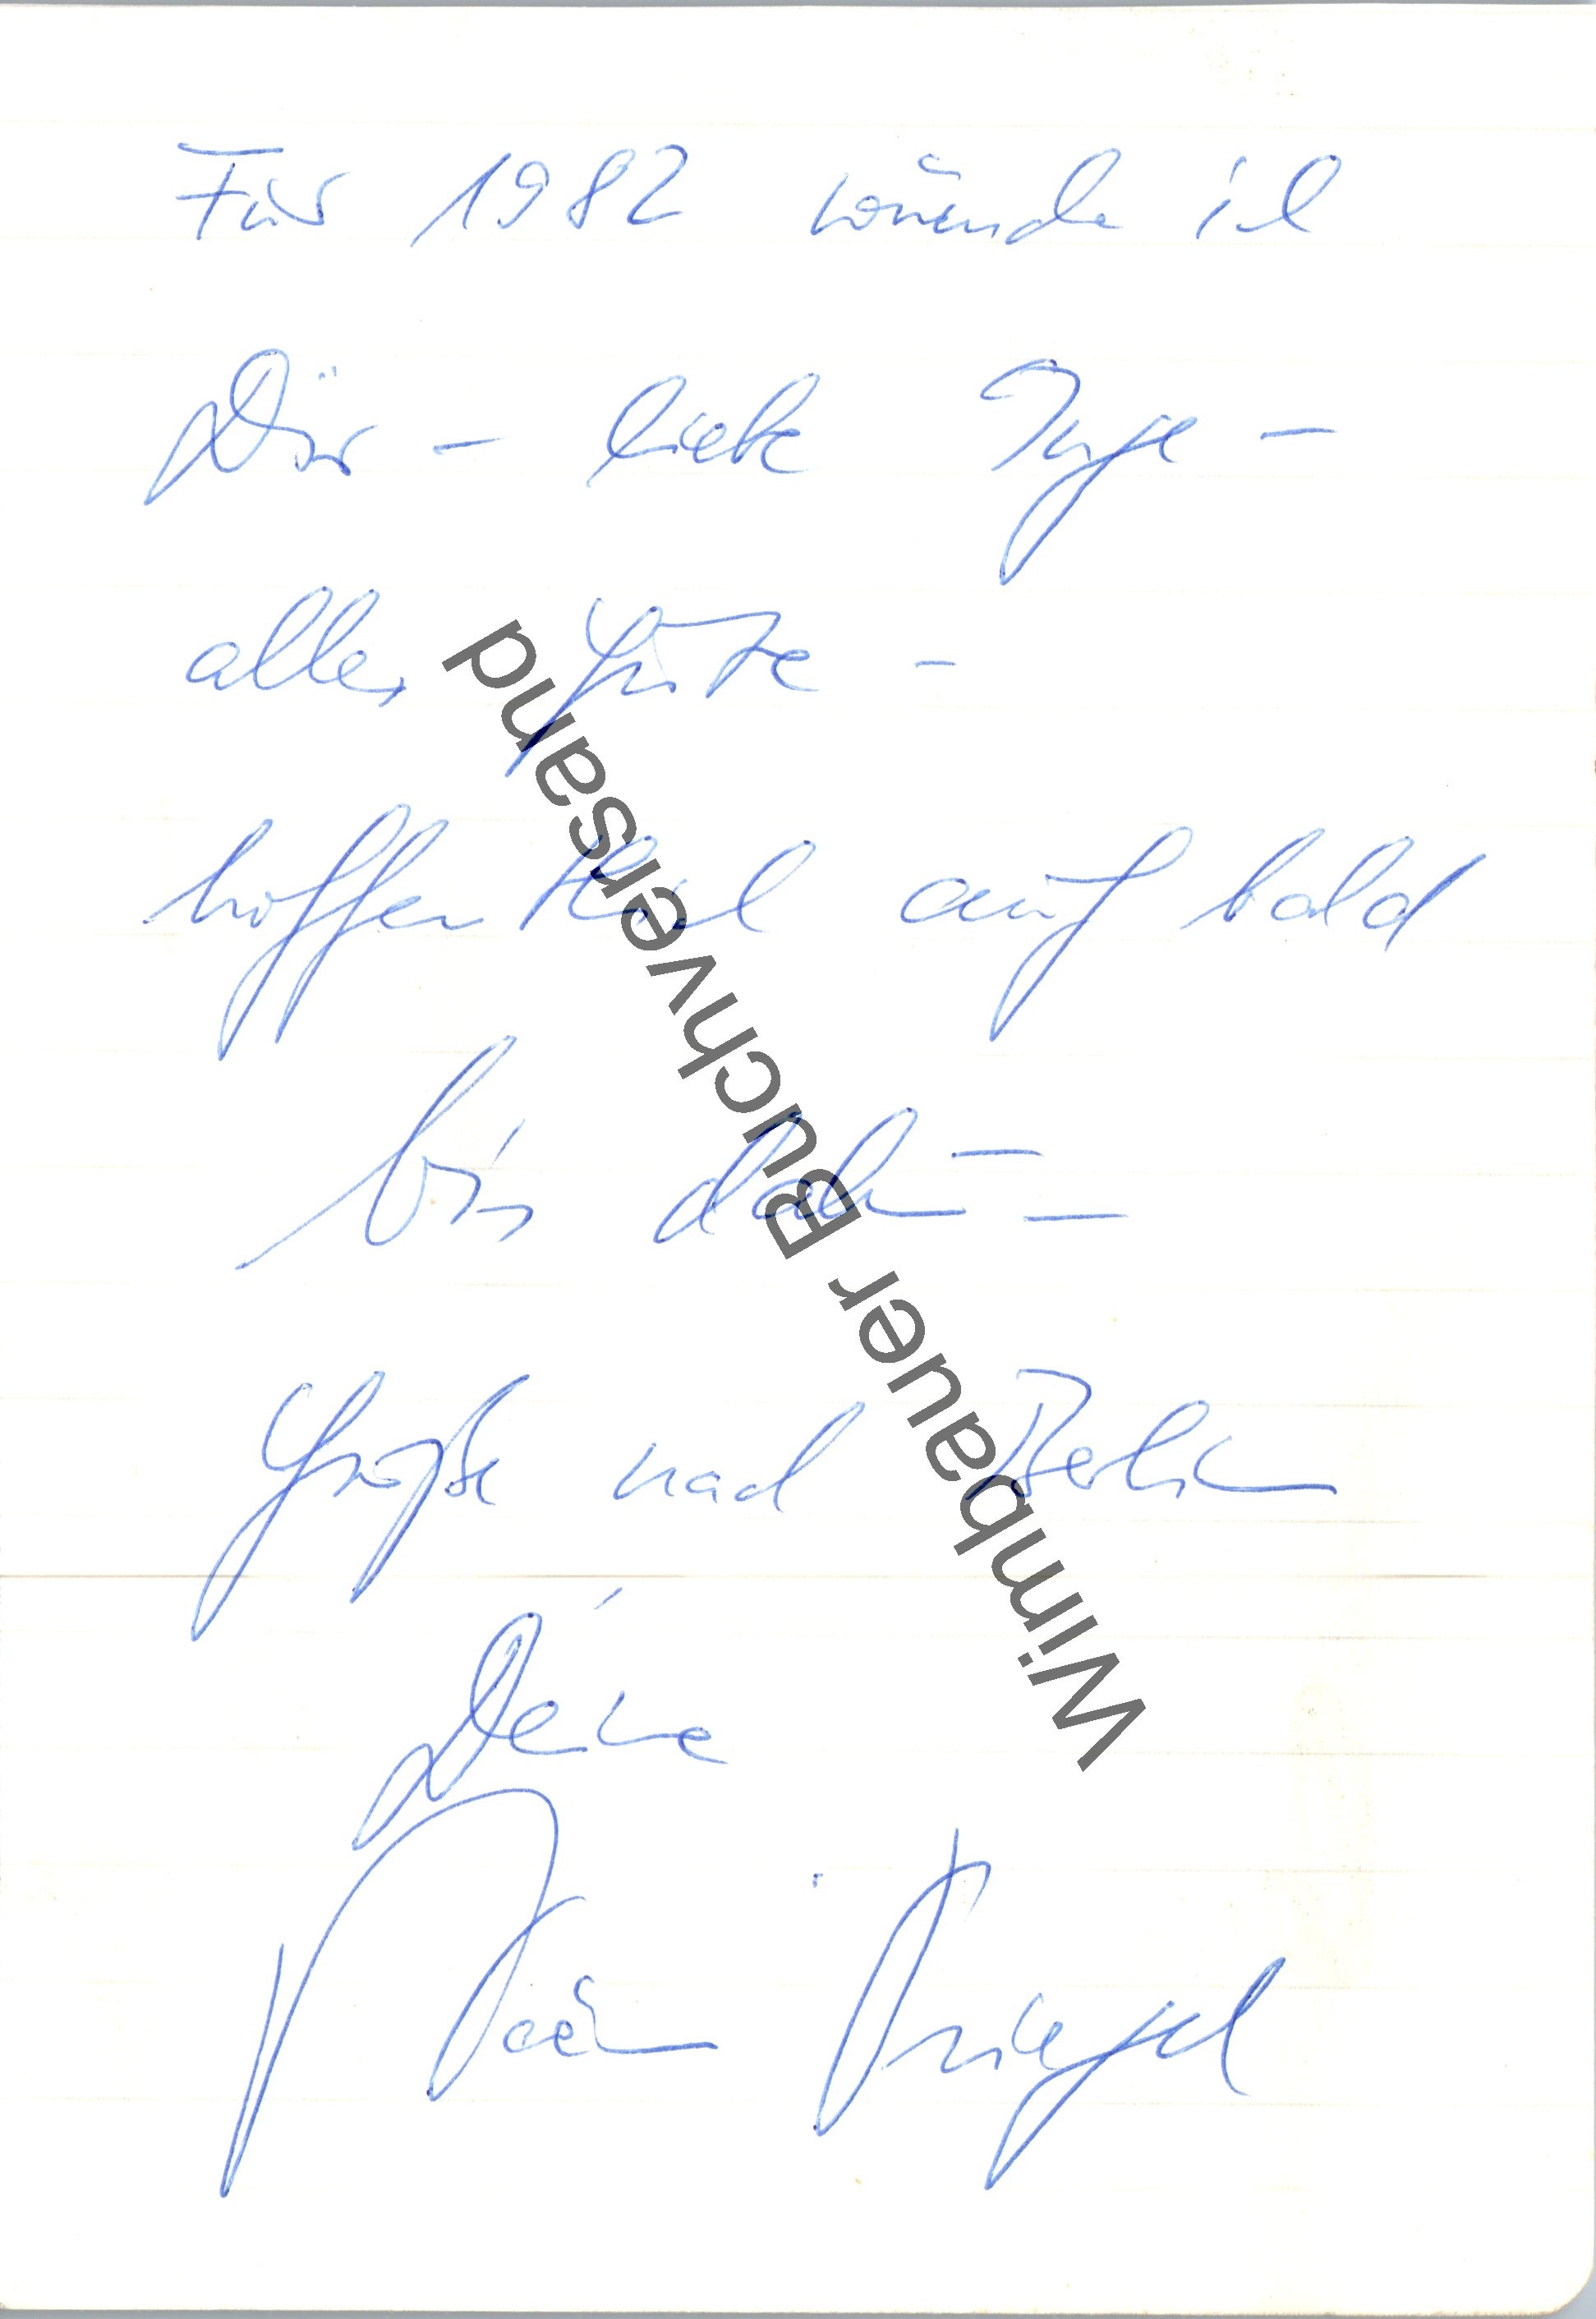 Für 1982 wünsche ich
Dir – liebe Inge –
alles Gute –
hoffentlich auf bald
bis dahin –
Grüße nach Berlin
Deine
Wimbauer Buchversand